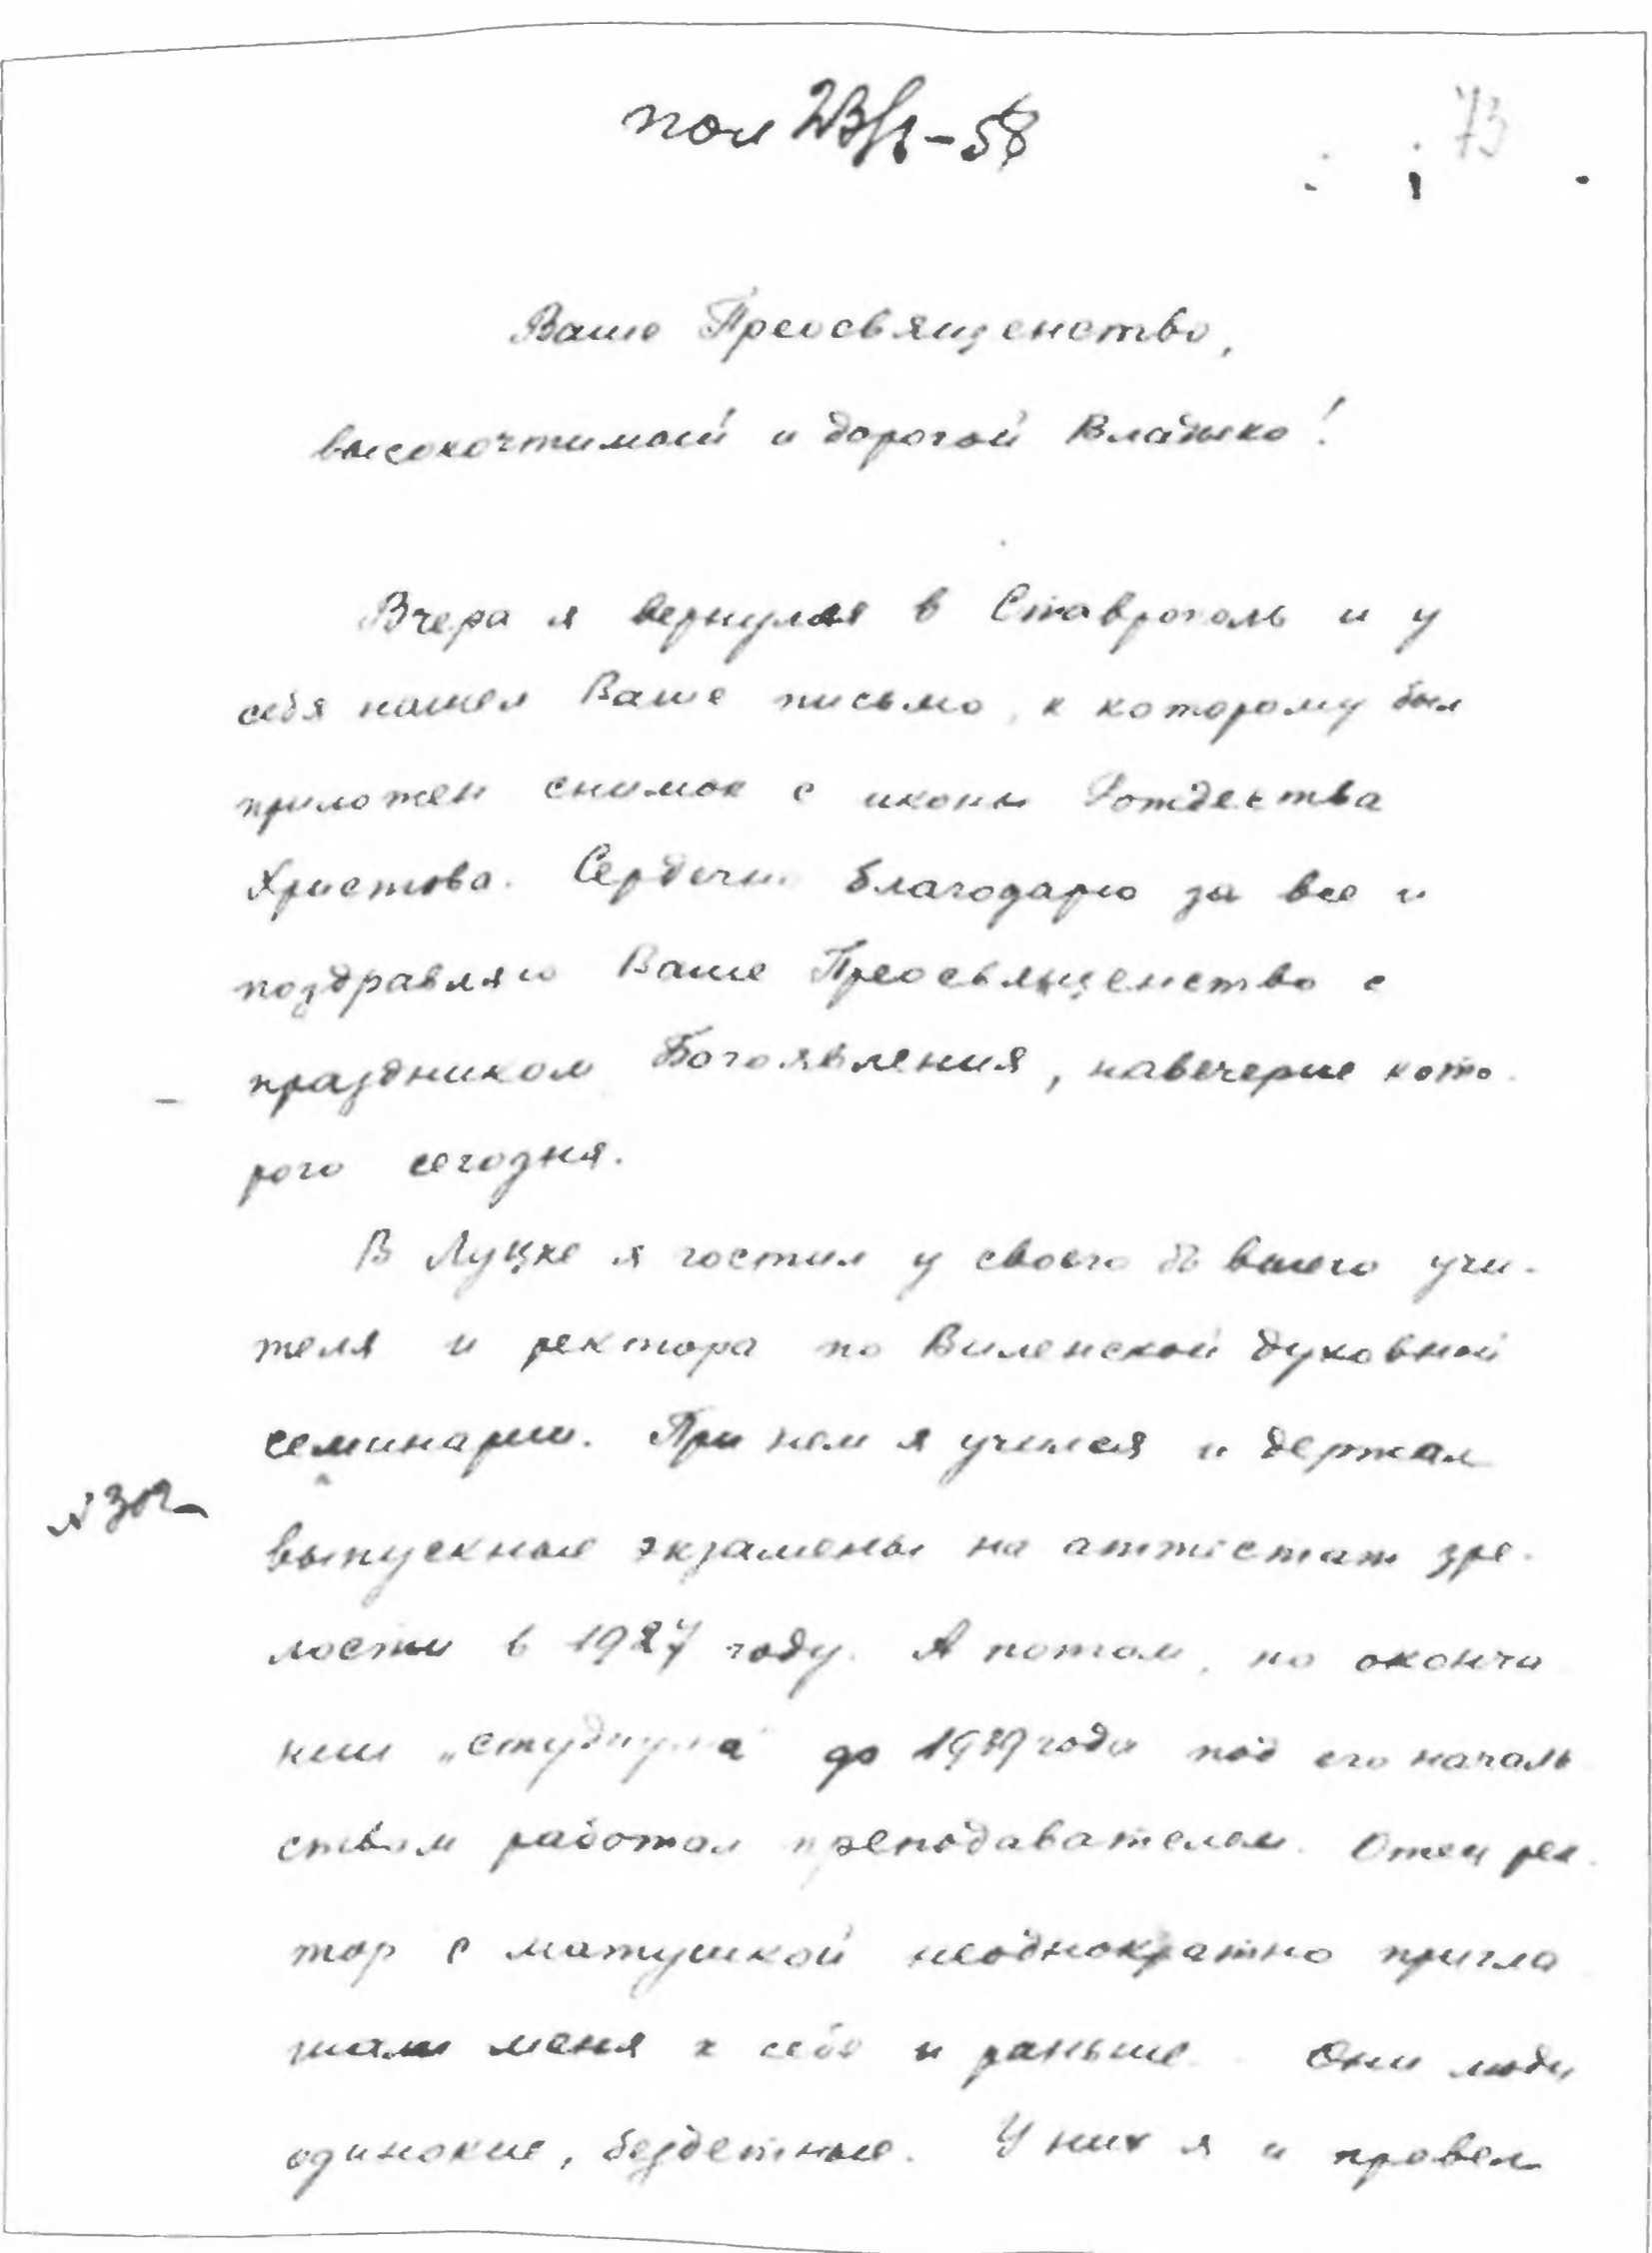 пол 23/I-58
73
Ваше Преосвященство,
высокочтимый и дорогой Владыко!
Вчера я вернулся в Ставрополь и у
себя нашел Ваше письмо, к которому был
приложен снимок с иконы Рождества
Христова. Сердечно благодарю за все и
поздравляю Ваше Преосвященство с
праздником Богоявления, навечерие кото-
рого сегодня.
В Луцке я гостил у своего бывшего учи-
теля и ректора по Виленской духовной
семинарии. При нем я учился и держал
выпускные экзамены на аттестат зре-
лости в 1927 году. А потом, по оконча
нии „студиума" до 1939 года под его началь
ством работал преподавателем. Отец рек-
тор с матушкой неоднократно пригла
шали меня к себе и раньше. Они люди
одинокие, бездетные. У них я и провел